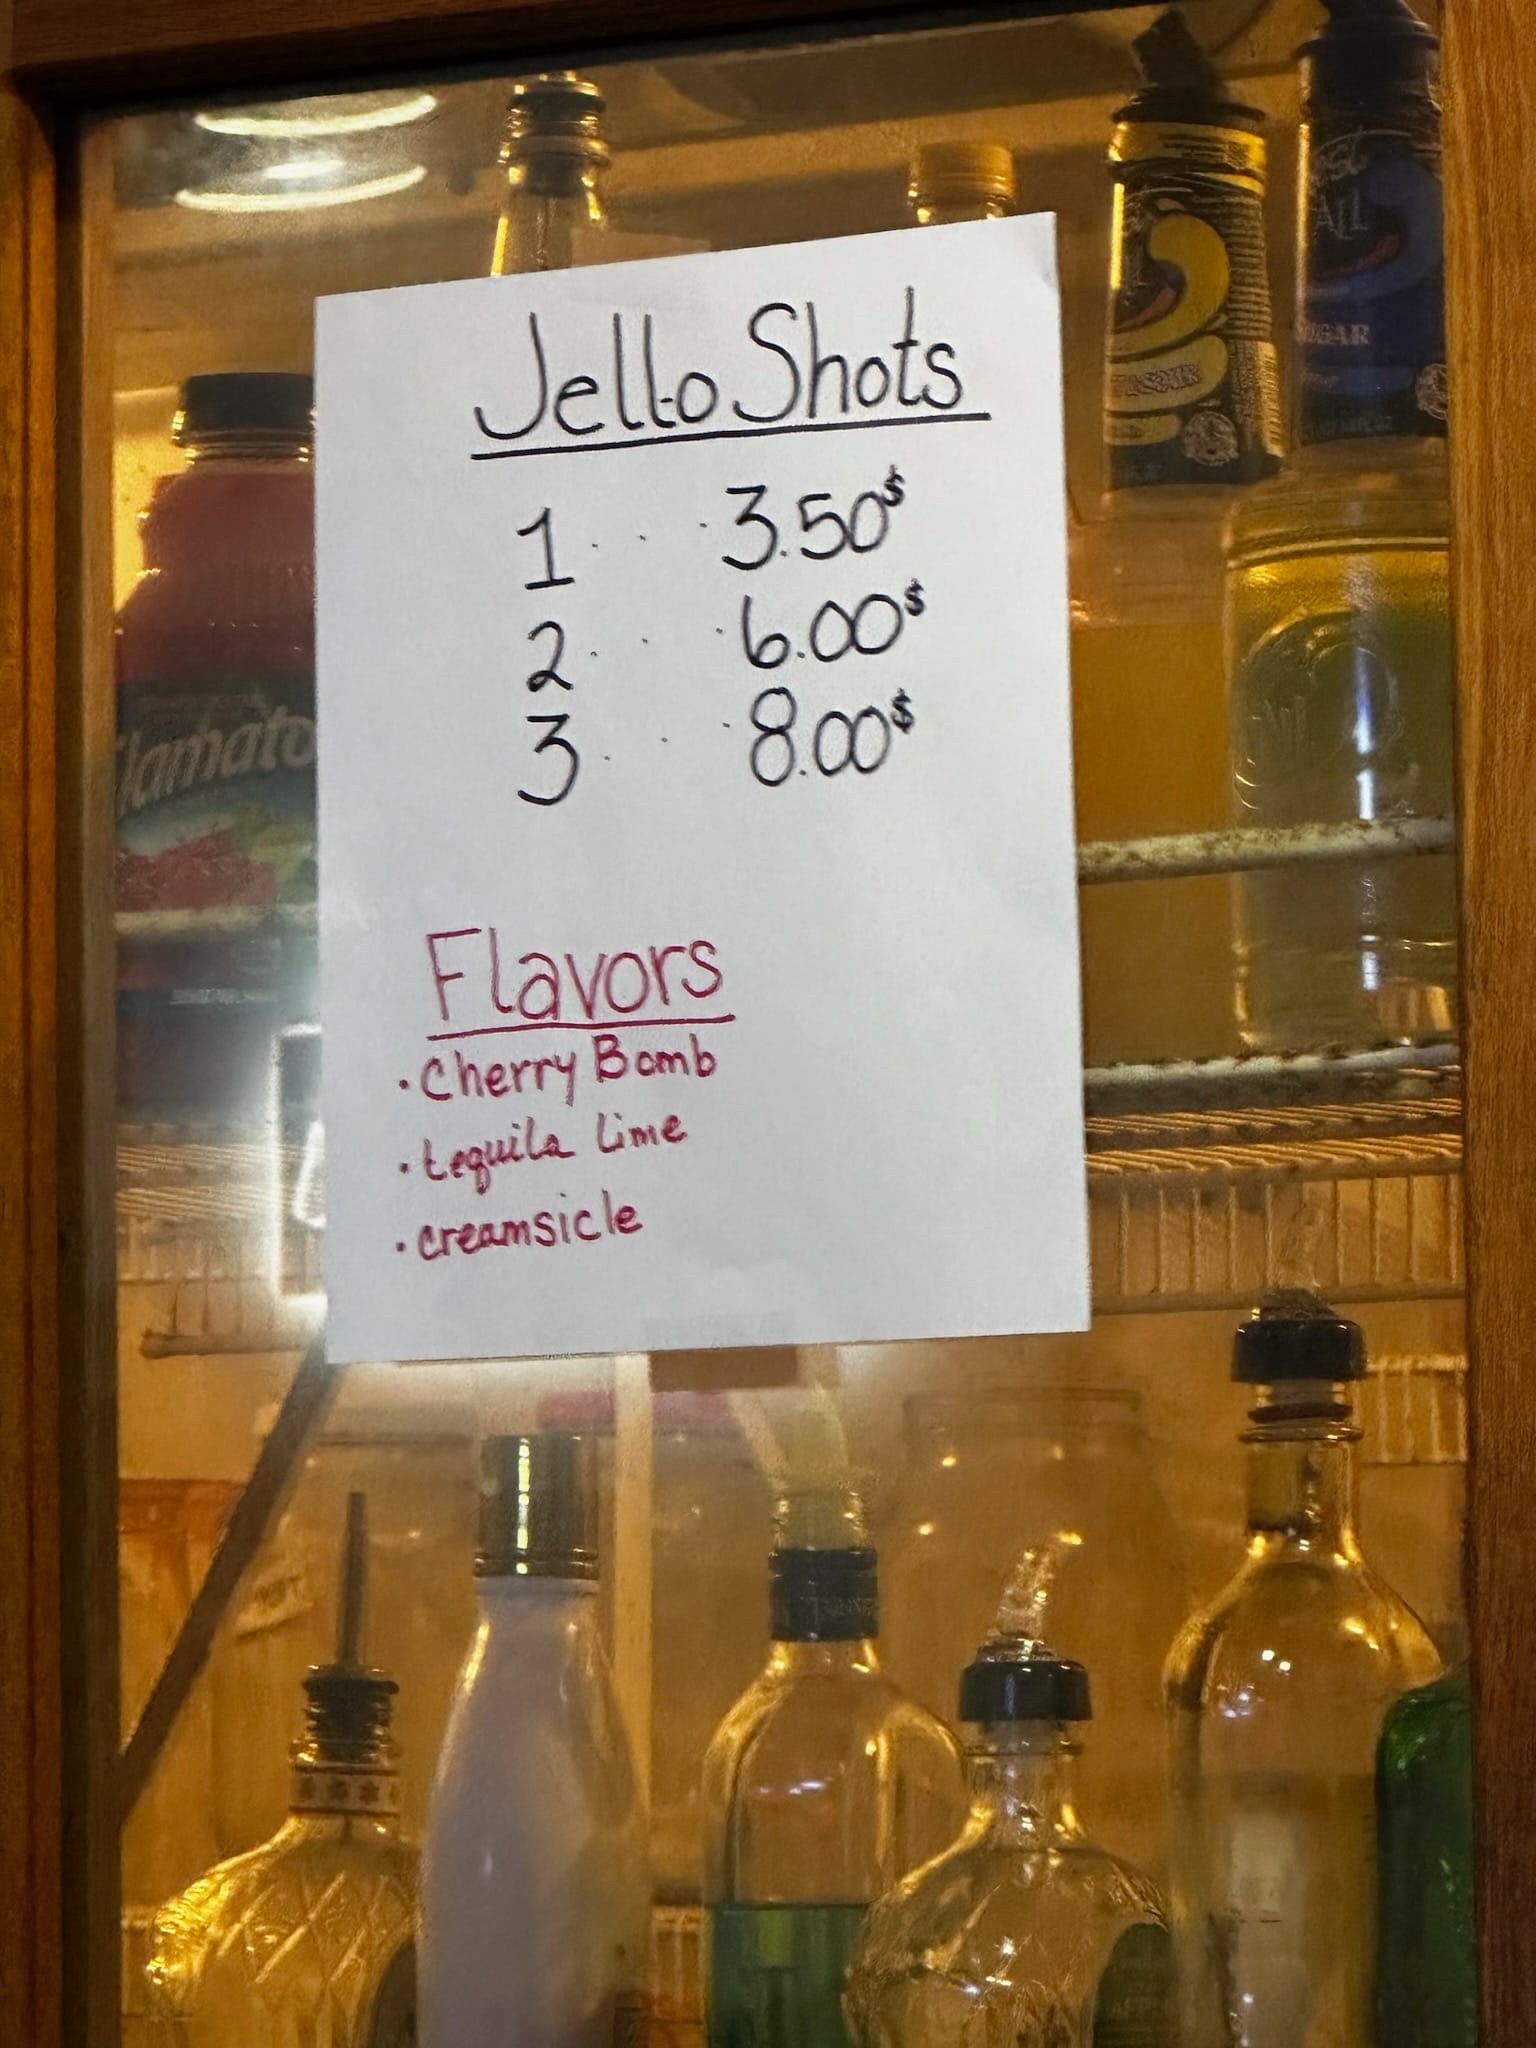 Jello Shots
1 . . . 3.50$
2 . . . 6.00$
3 . . . 8.00$
Flavors
• Cherry Bomb
• tequila lime
• creamsicle
lamato